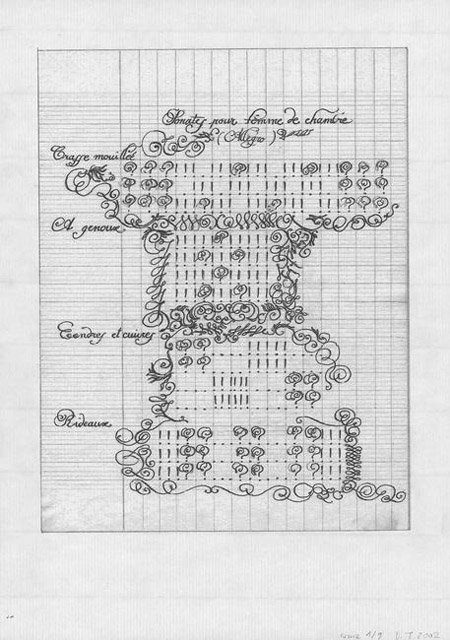 Sonates pour femme de chambre
(Allegro)
Crasse mouillée
A genoux
Cendres et cuivres
Rideaux
1/9